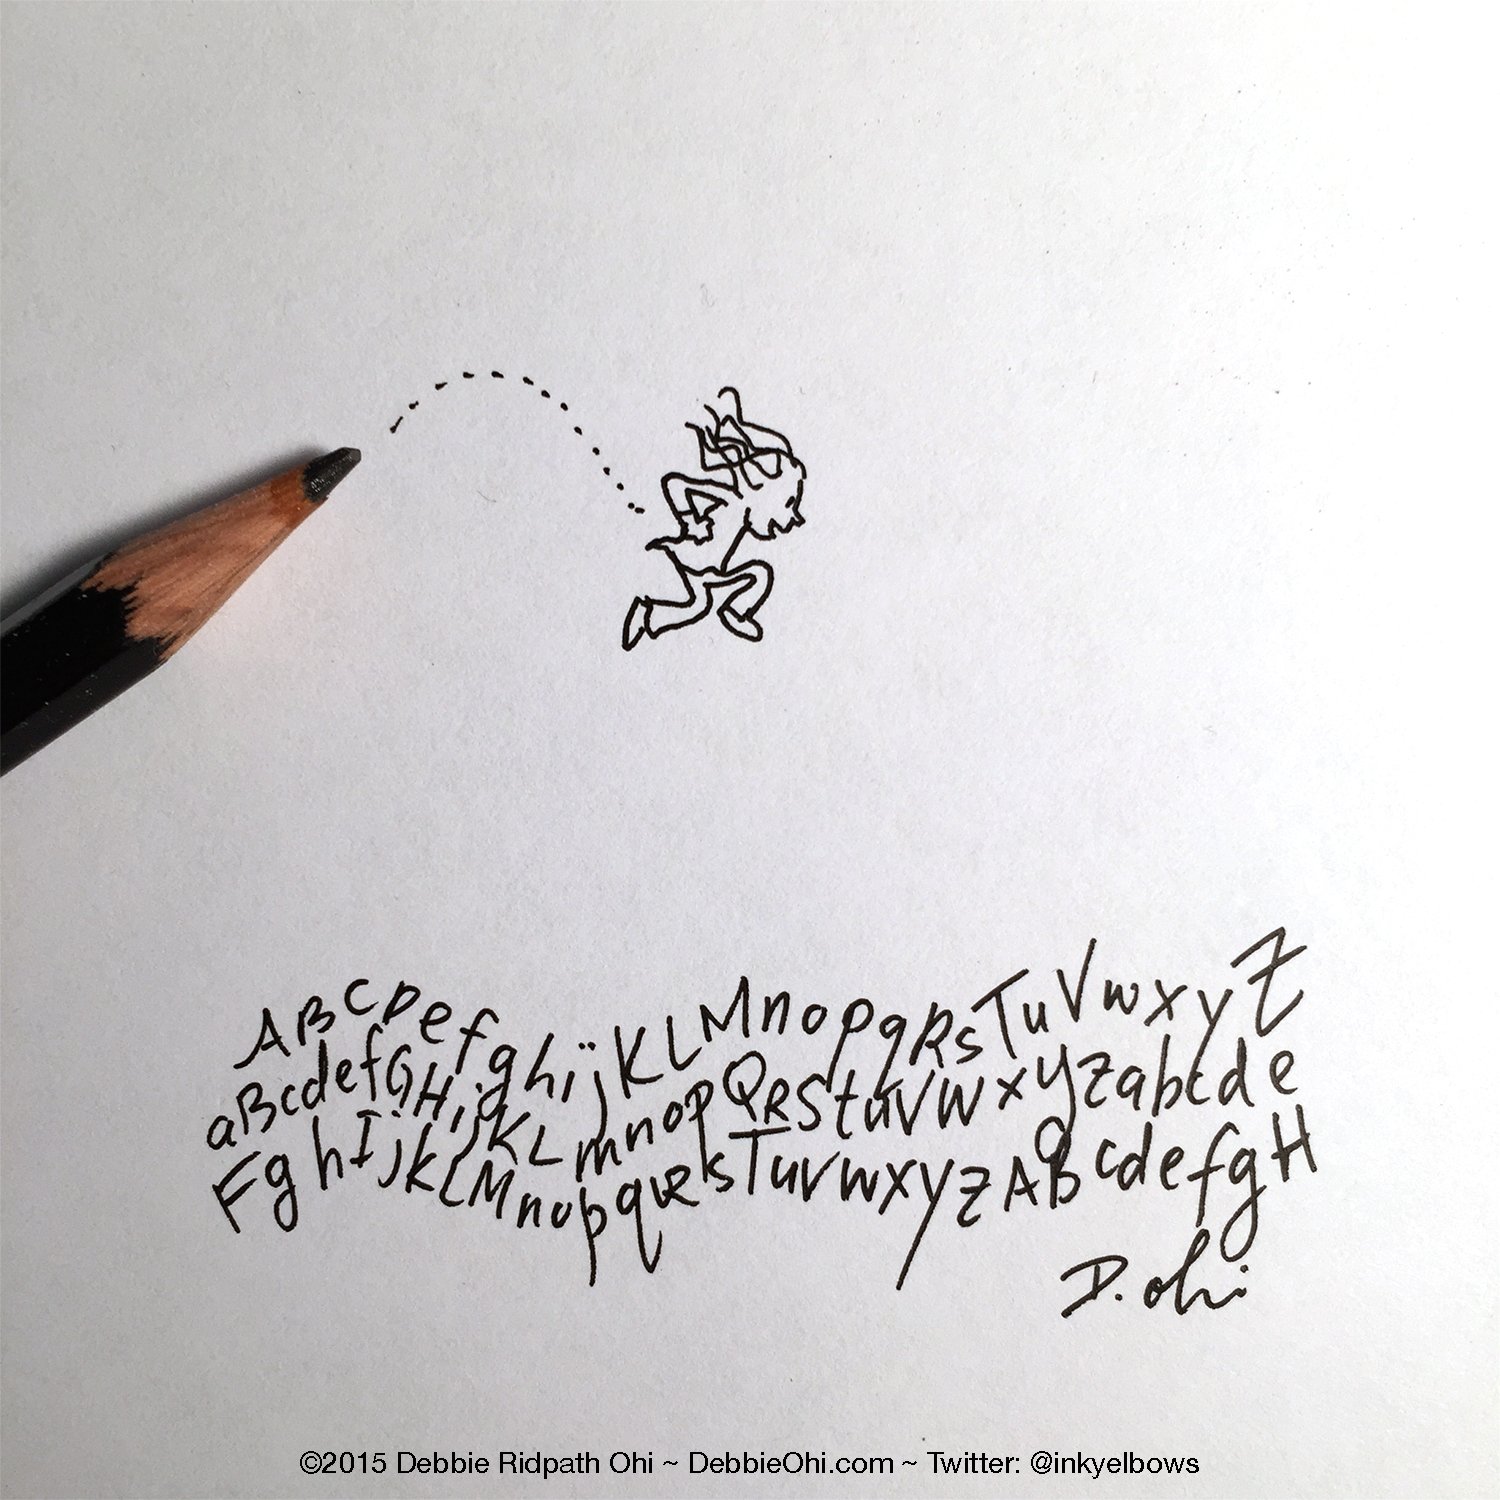 ABCDefghijKLMnopqRsTuVwxyZ
aBcdefGHijKLmnopQRStuVWxyzabcde
FghIjklMnopqRsTuvwxyzABcdefgH
D. Ohi
©2015 Debbie Ridpath Ohi ~ DebbieOhi.com ~ Twitter: @inkyelbows